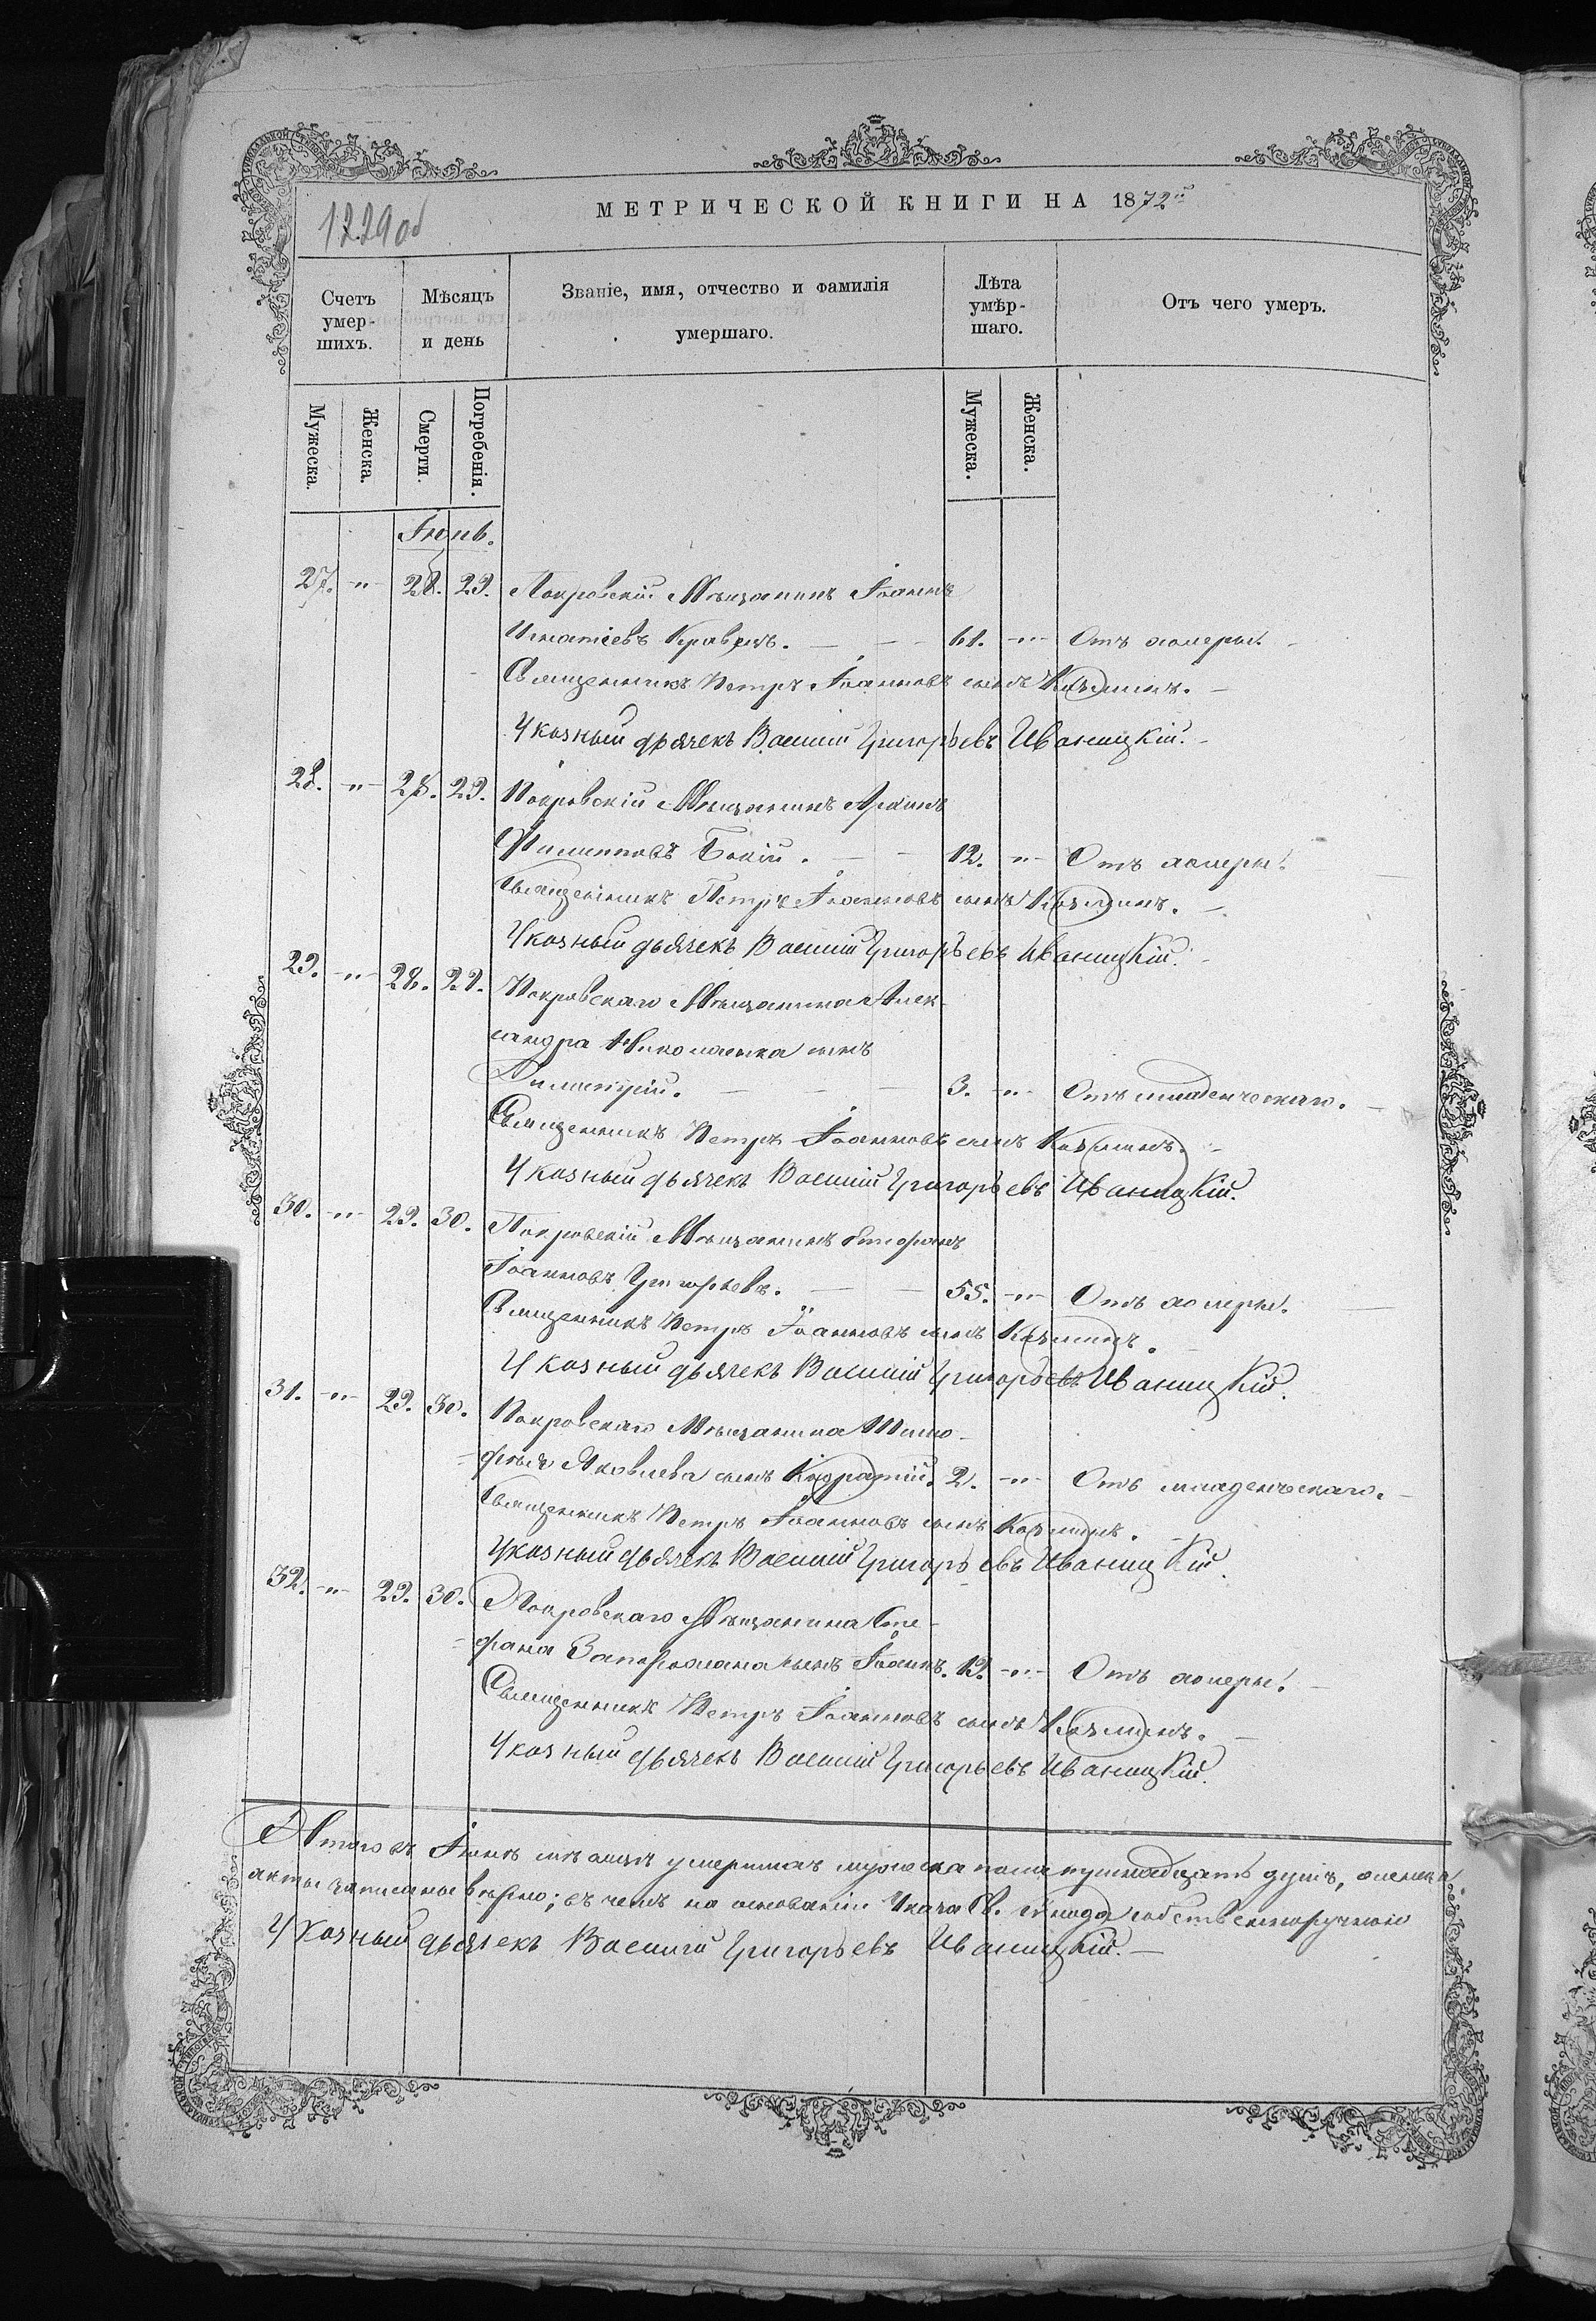 1229 об
МЕТРИЧЕСКОЙ КНИГИ НА 1872й
Счетъ умер-шихъ.
Мѣсяцъ и день
Званіе, имя, отчество и фамилія умершаго.
Лѣта умѣр-шаго.
Отъ чего умеръ.
Мужеска.
Женска.
Смерти.
Погребенія.
Мужеска.
Женска.
Іюнь.
27. -"- 28. 29. Покровскій Мѣщанинъ Іоаннъ
Игнатіевъ Кравецъ. — — 61. -"- Отъ холеры. -
Священникъ Петръ Іоанновъ сынъ Козминъ. -
Указный дьячекъ Василій Григорьевъ Иваницкій. -
28. -"- 28. 29. Покровскій Мѣщанинъ
Филипповъ . — - 12. -"- Отъ холеры.
Священникъ Петръ Іоанновъ сынъ Козминъ. -
Указный дьячекъ Василій Григорьевъ Иваницкій. -
29. -"- 28. 29. Покровскаго Мѣщанина Алек-
сандра Николаенка сынъ
Димитрій. — — - 3. -"- Отъ младенческаго. -
Священникъ Петръ Іоанновъ сынъ Козминъ. -
Указный дьячекъ Василій Григорьевъ Иваницкій.
30. -"- 29. 30. Покровскій Мѣщанинъ Стефанъ
Іоанновъ Григорьевъ. — - 55. -"- Отъ холеры. —
Священникъ Петръ Іоанновъ сынъ Козминъ. -
Указный дьячекъ Василій Григорьевъ Иваницкій.
31. -"- 29. 30. Покровскаго Мѣщанина Тимо-
фея Яковлева сынъ Кодратій. 2. -"- Отъ младенческаго. -
Священникъ Петръ Іоанновъ сынъ Козминъ. -
Указный дьячекъ Василій Григорьевъ Иваницкій.
32. -"- 29. 30. Покровскаго Мѣщанина Сте-
фана сынъ Іоаннъ. 12. -"- Отъ холеры. -
Священникъ Петръ Іоанновъ сынъ Козминъ. -
Указный дьячекъ Василій Григорьевъ Иваницкій.
Итого въ Іюнѣ мѣсяцѣ умершихъ мужеска пола душъ,
акты записаны вѣрно; въ чемъ на основаніи Указа Св. Сѵнода собственноручною
Указный дьячекъ Василій Григорьевъ Иваницкій. —